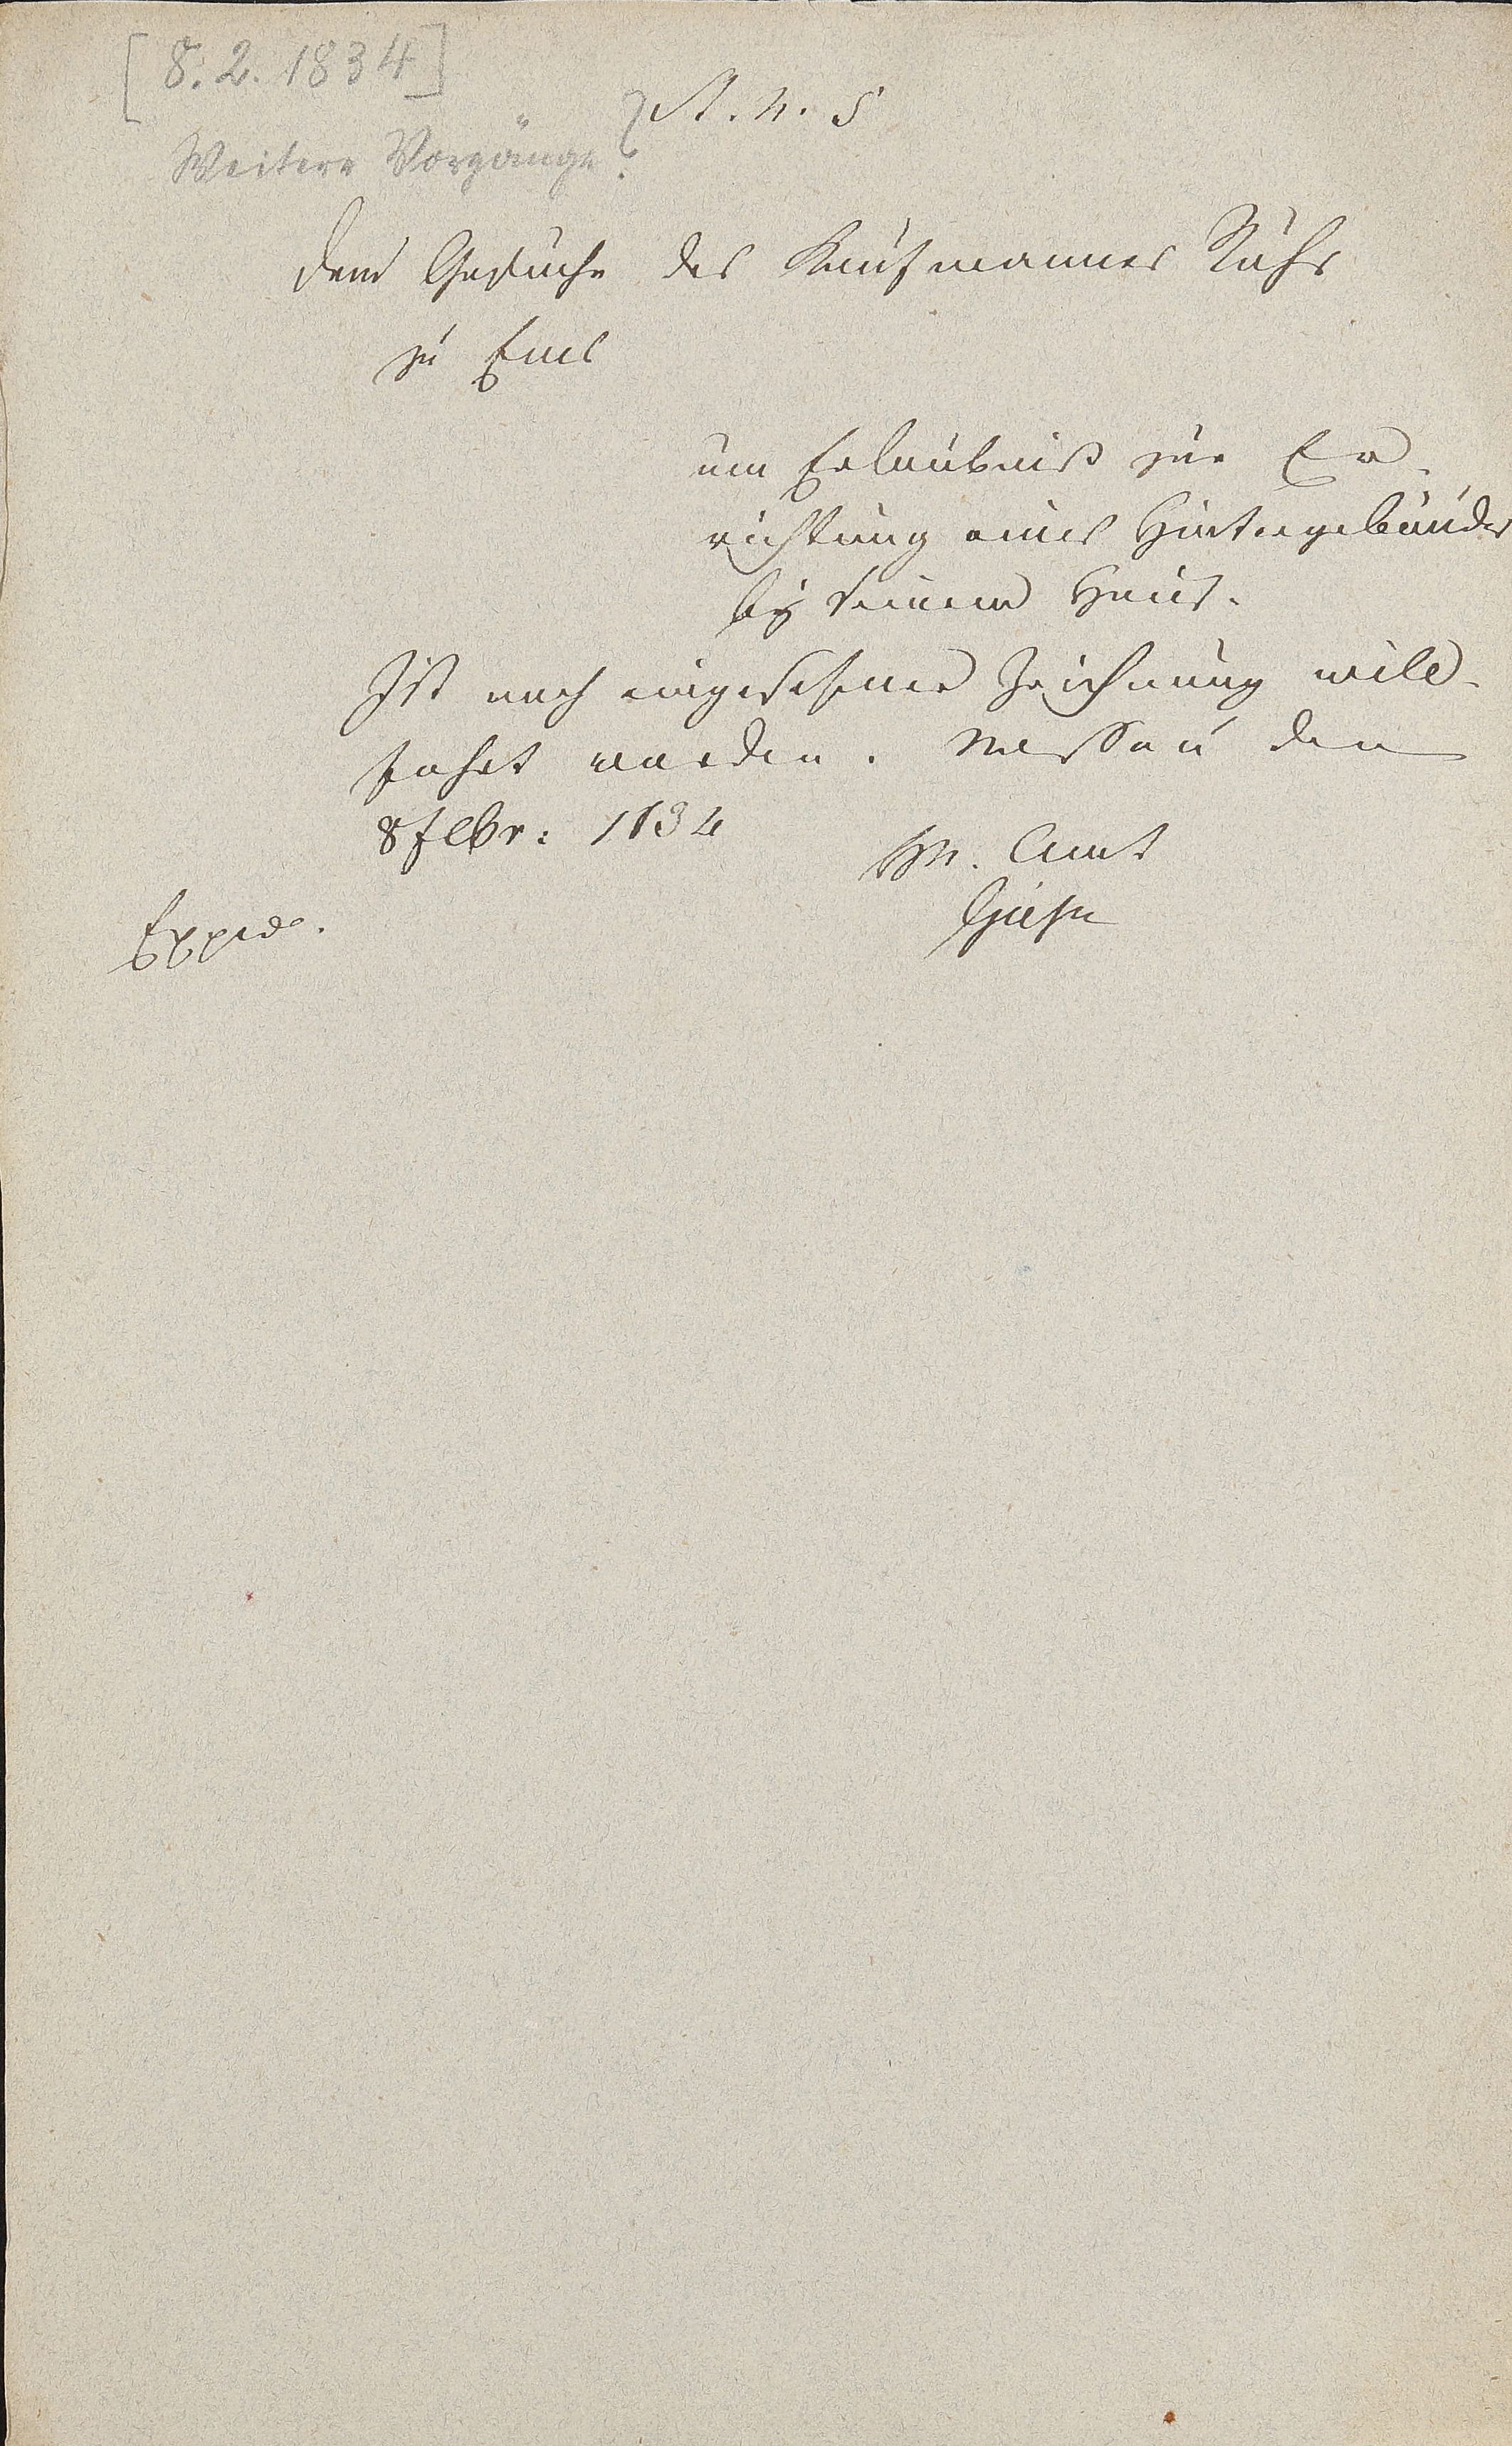 [8.2.1834]
Weitere Vorgänge?
Dem Gesuche des Kaufmannes
zu Ems
um Erlaubniß zur Er-
richtung eines Hintergebäudes
bey seinem Haus.
Ist nach eingesehener Zeichnung will-
fahrt worden. Nassau den
8 Febr: 1834
H. N. Amt
Exped.